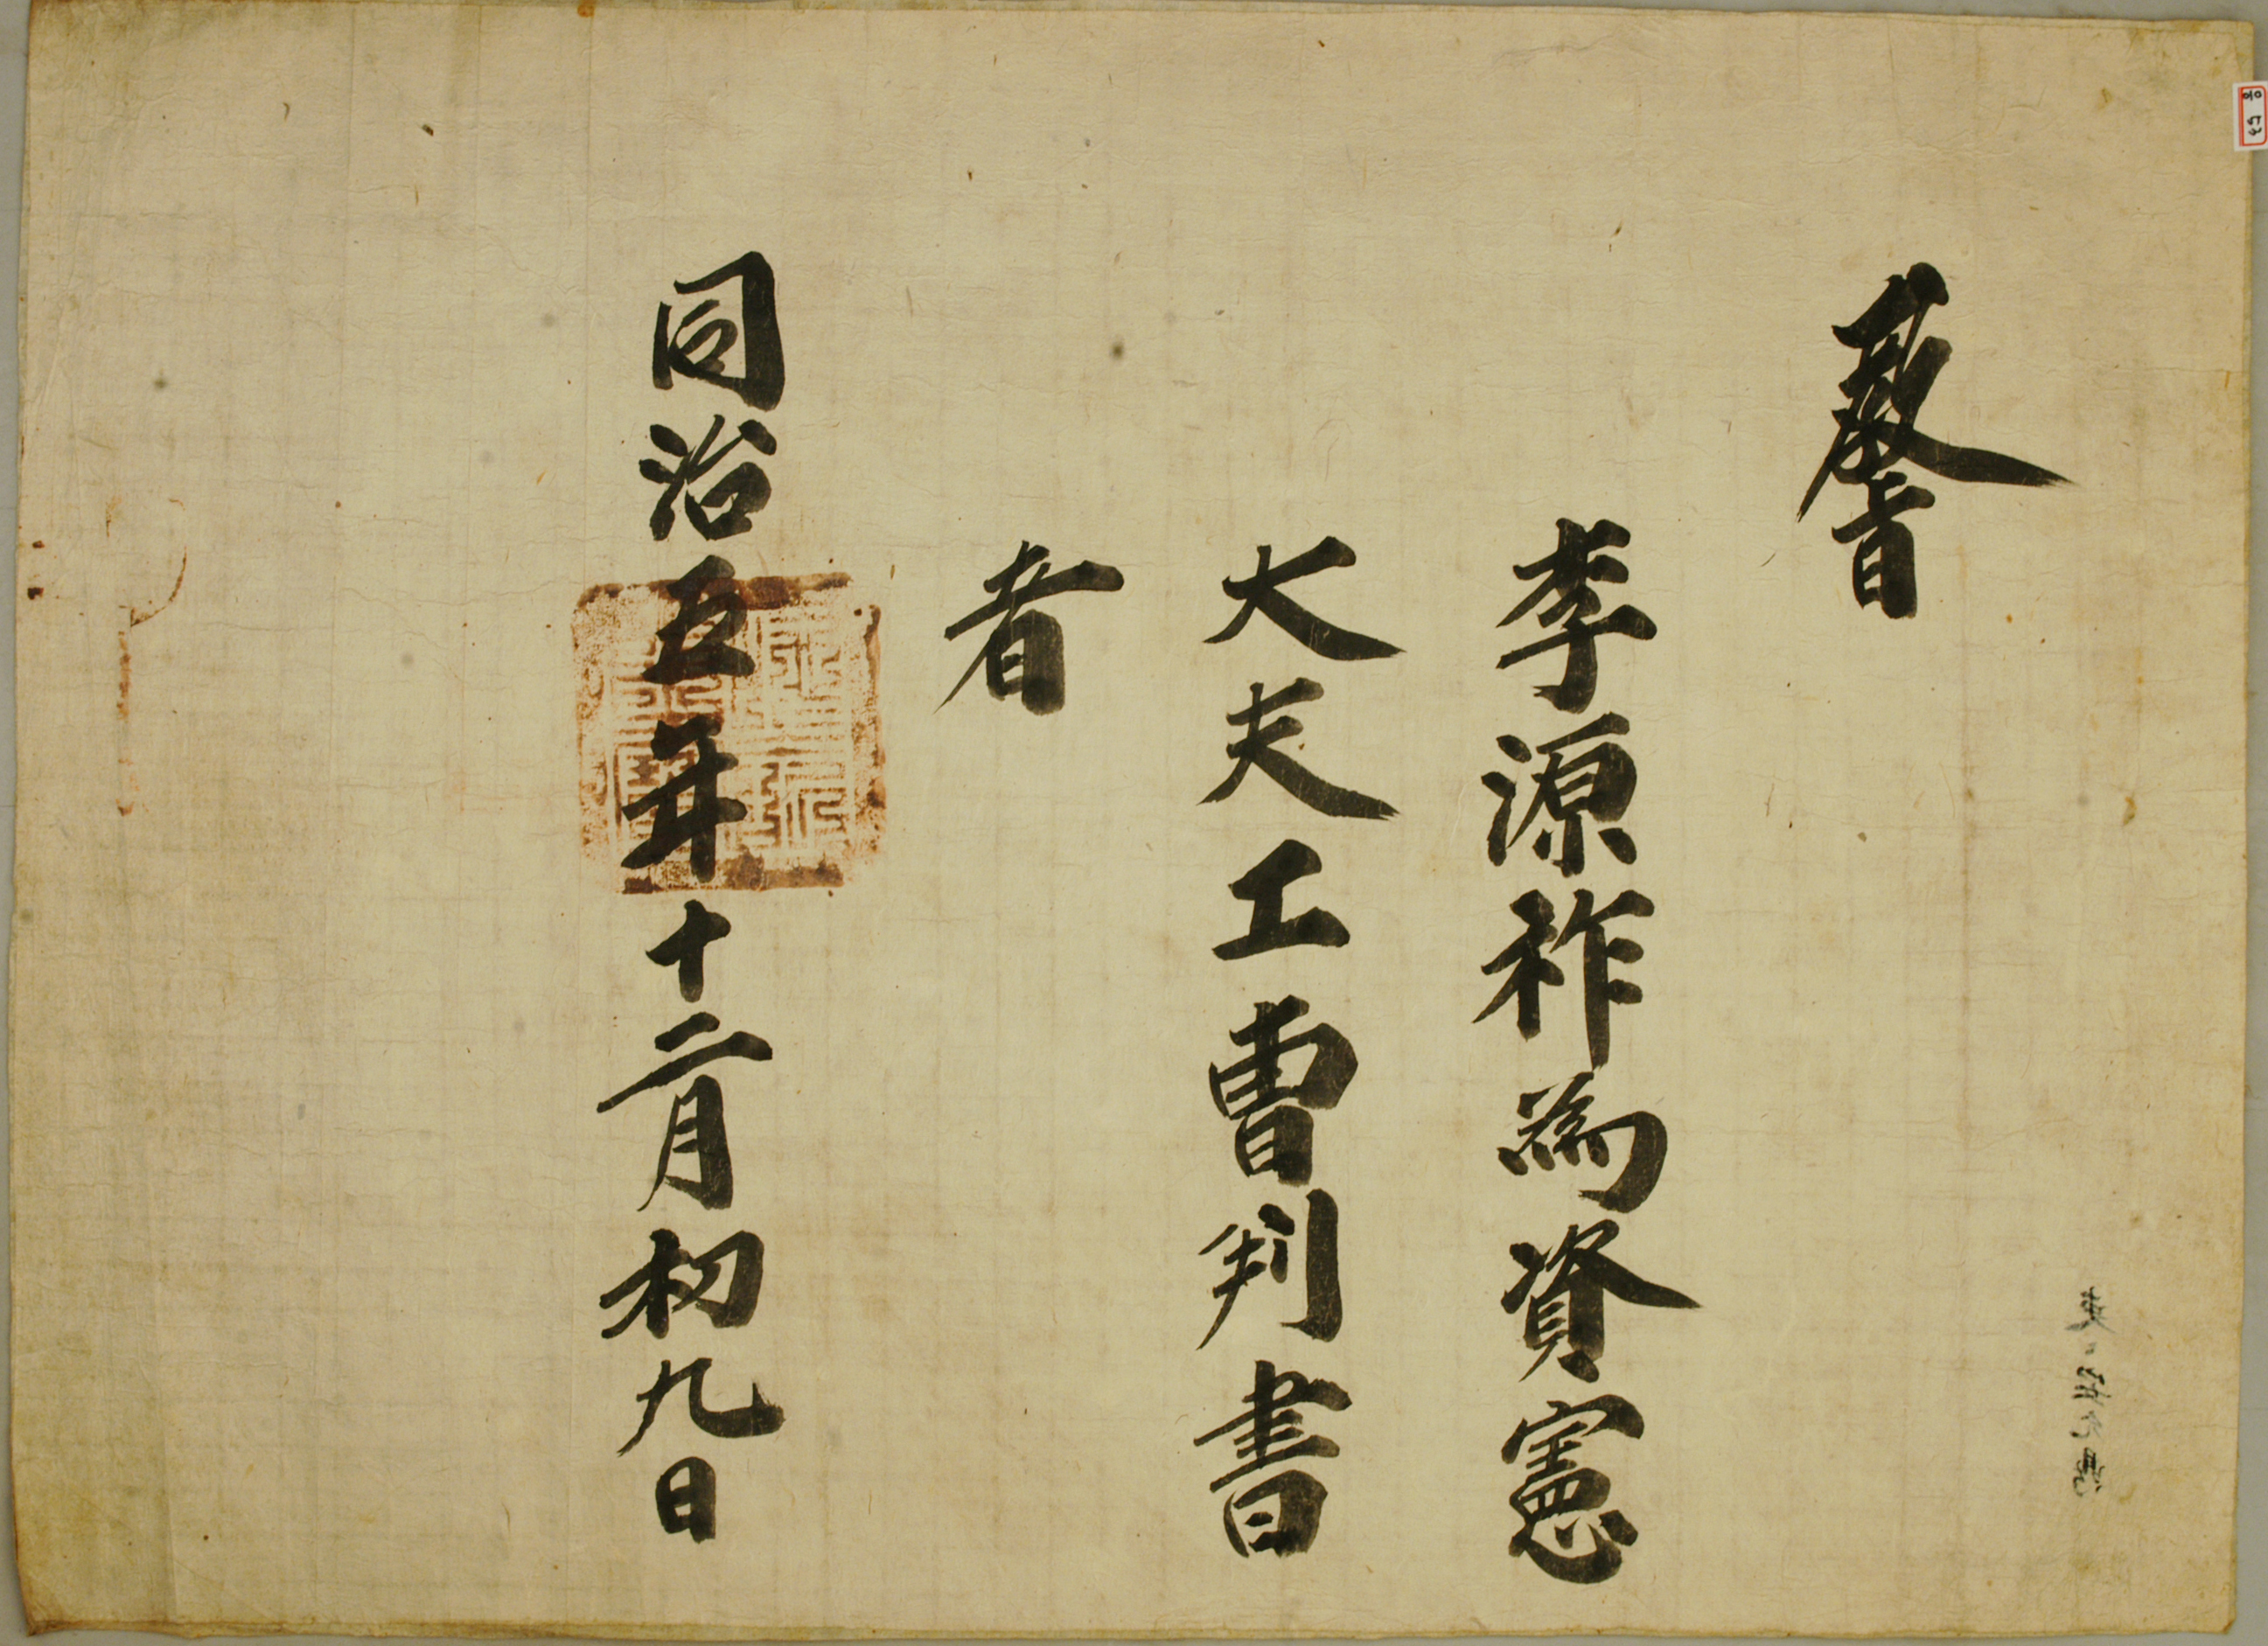 敎旨
李源祚為資憲
大夫工曺判書
者
同治五年十二月初九日